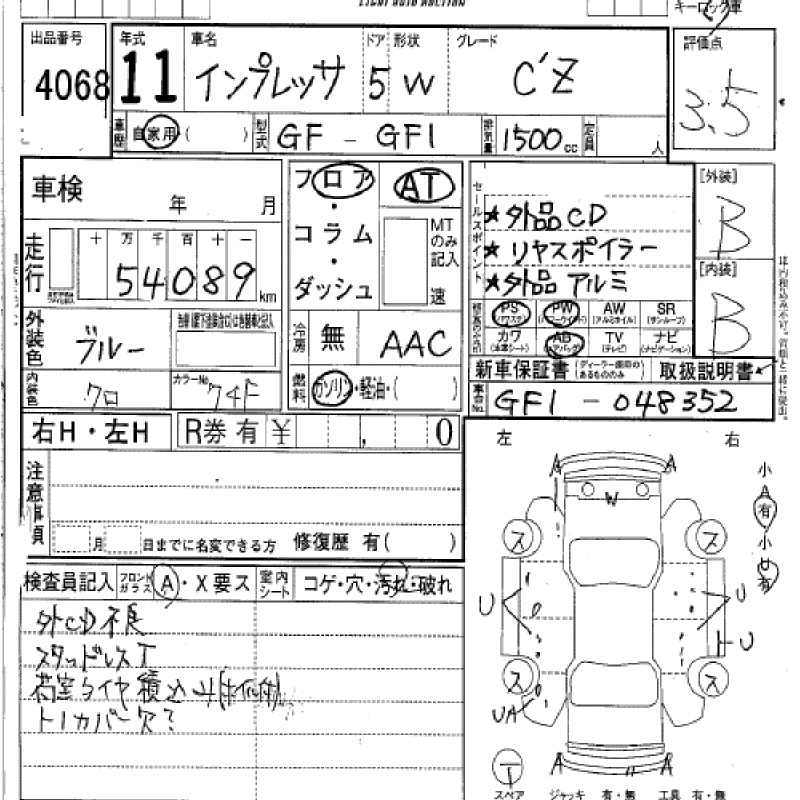 LIGHT AUTO AUCTION
キーロック車
出品番号 4068
年式 11
車名 インプレッサ
ドア 5
形状 W
グレード C'Z
評価点 3.5
車歴 自家用 ( )
型式 GF - GF1
排気量 1500 cc
定員 人
車検 年 月
フロア・コラム・ダッシュ
AT
MTのみ記入 速
セールスポイント
★外品CD
★リヤスポイラー
★外品アルミ
[外装] B
[内装] B
走行 十 万 千 百 十 一
54089 km
PS (パワステ) PW (パワーウインド) AW (アルミホイル) SR (サンルーフ)
カワ (本革シート) AB (エアバッグ) TV (テレビ) ナビ (ナビゲーション)
外装色 ブルー
冷房 無 AAC
新車保証書 (ディーラー捺印のあるもののみ) 取扱説明書
内装色 クロ
カラーNo. 74F
燃料 ガソリン・軽油・( )
車台No. GF1 - 048352
右H・左H
R券 有 ¥ , 0
注意事項
月 日までに名変できる方
修復歴 有( )
左 右
小A有
小U有
検査員記入
フロントガラス A・X要ス
室内シート コゲ・穴・汚れ・破れ
外CD不良
スタッドレスT
トノカバー欠?
A A
W
ス ス
U U
U
ス ス
UA
A A
スペア ジャッキ 有・無 工具 有・無